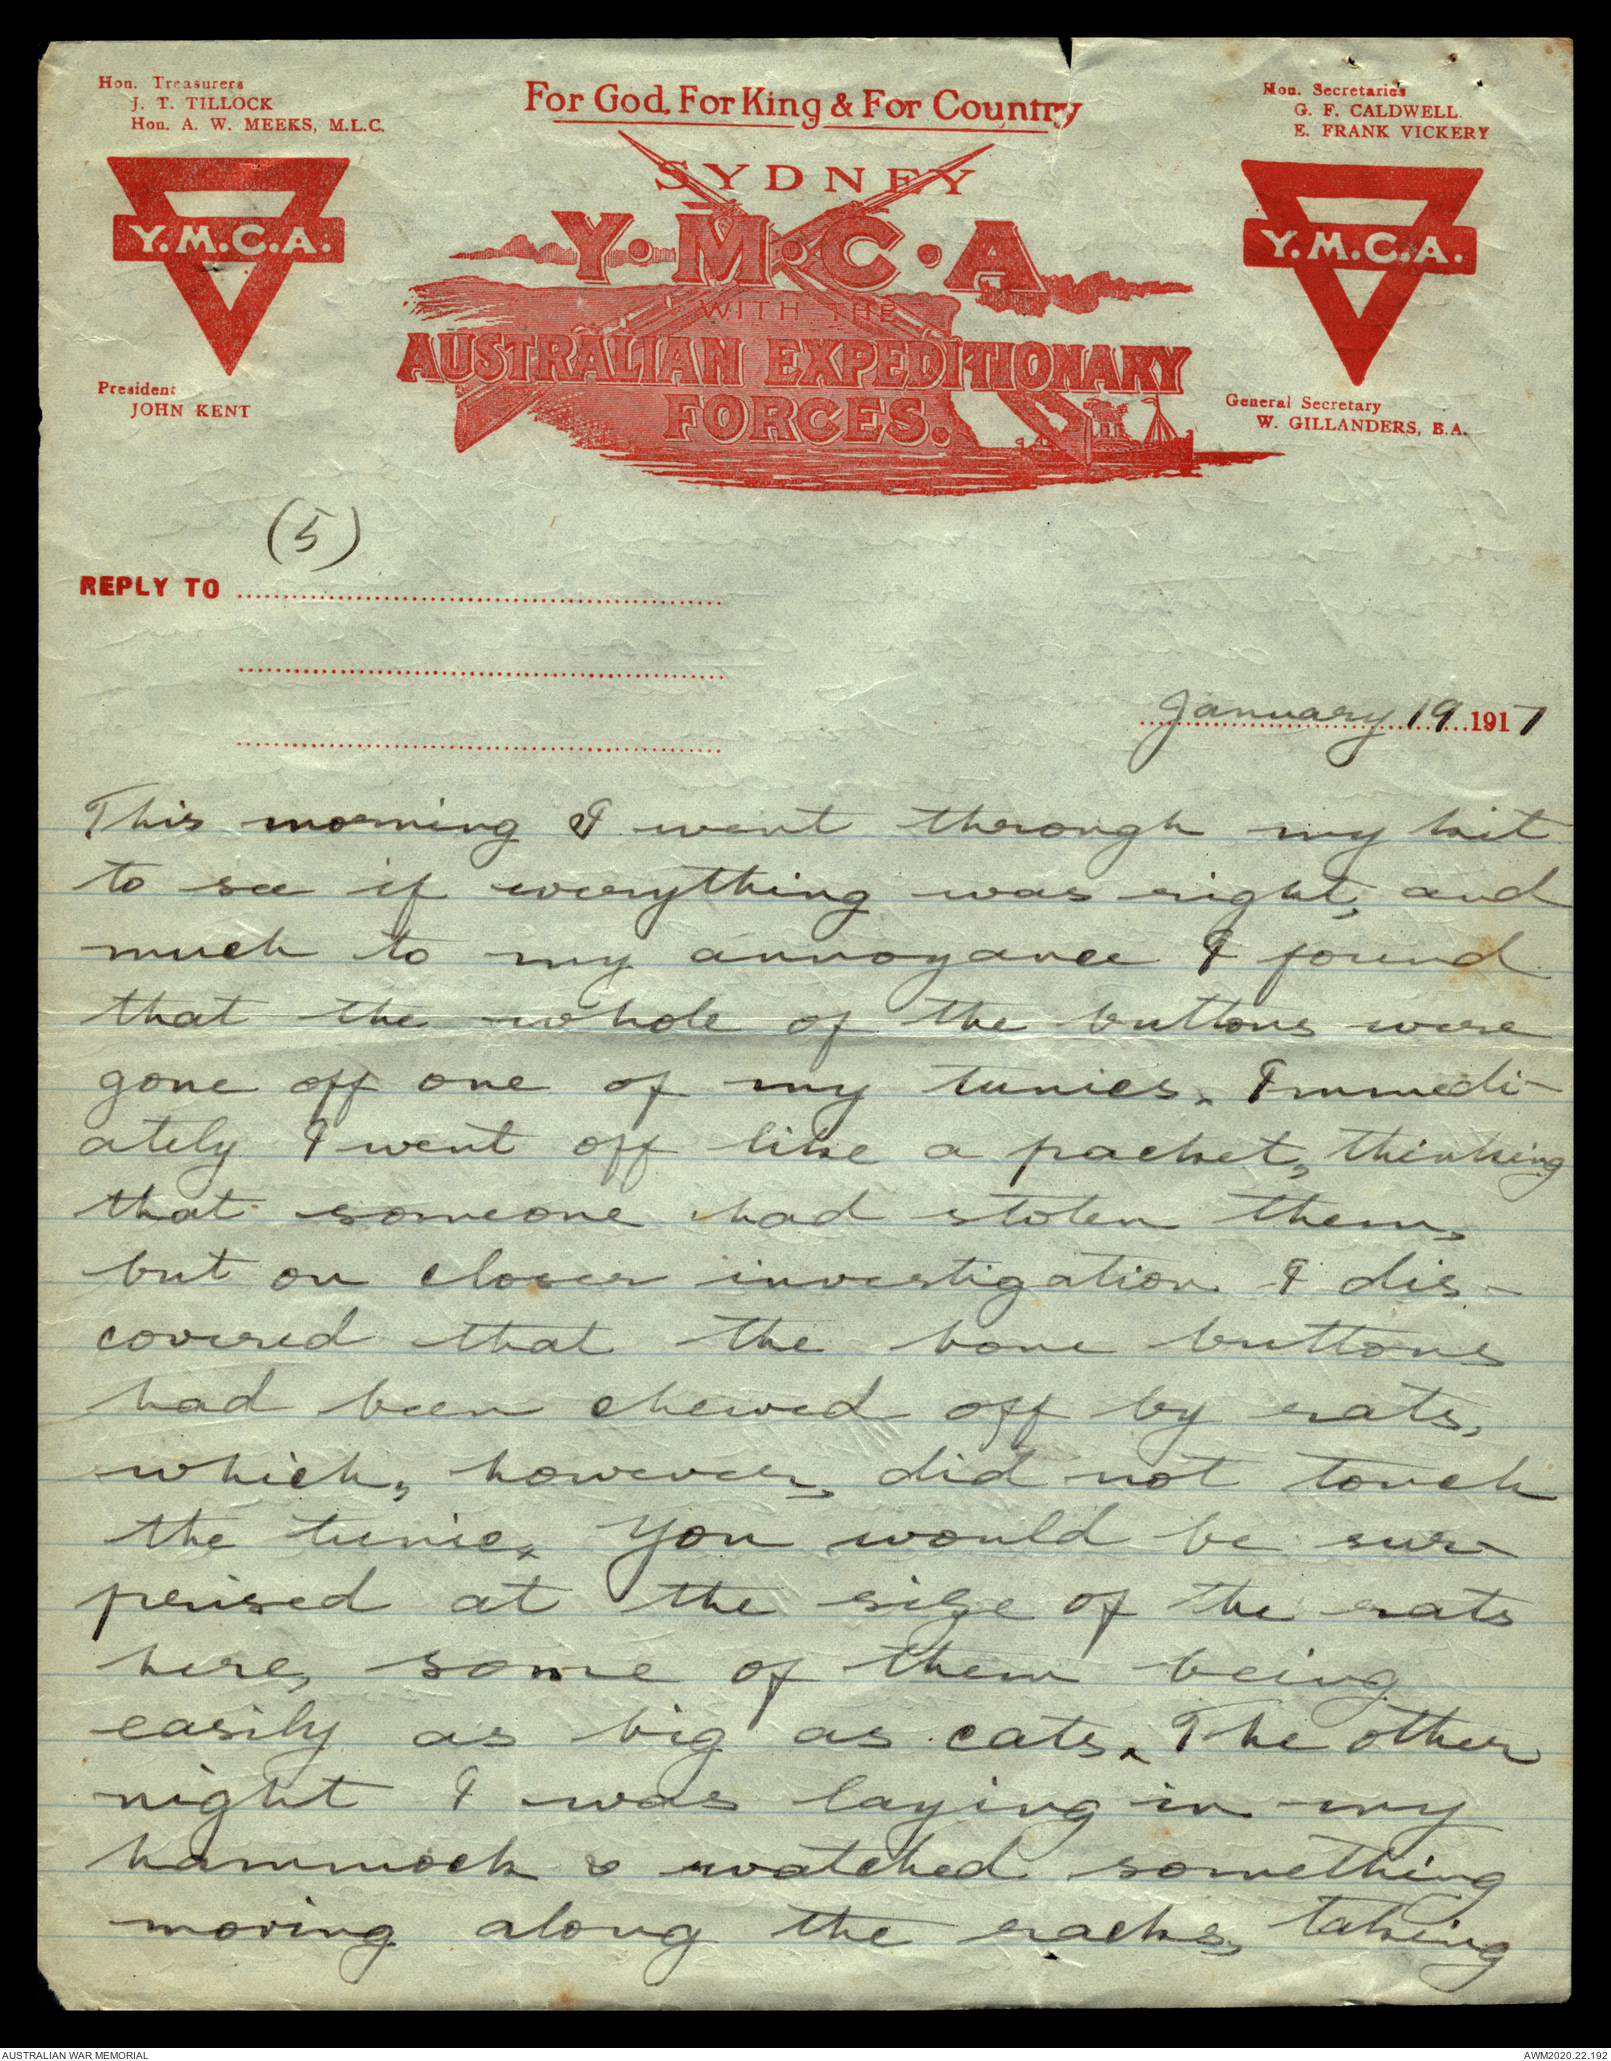 Hon. Treasurers
J. T. TILLOCK
Hon. A. W. MEEKS, M.L.C.
For God, For King & For Country
Hon. Secretaries
G. F. CALDWELL
E. FRANK VICKERY
SYDNEY
Y.M.C.A.
Y.M.C.A
Y.M.C.A.
WITH THE
AUSTRALIAN EXPEDITIONARY
FORCES.
President
JOHN KENT
General Secretary
W. GILLANDERS, B.A.
(5)
REPLY TO
January 19 1917
This morning I went through my kit
to see if everything was right, and
much to my annoyance I found
that the whole of the buttons were
gone off one of my tunics. Immedi-
ately I went off like a packet, thinking
that someone had stolen them,
but on closer investigation I dis-
covered that the bone buttons
had been chewed off by rats,
which, however, did not touch
the tunic. You would be sur-
prised at the size of the rats
here, some of them being
easily as big as cats. The other
night I was laying in my
hammock & watched something
moving along the racks, taking
AUSTRALIAN WAR MEMORIAL
AWM2020.22.192